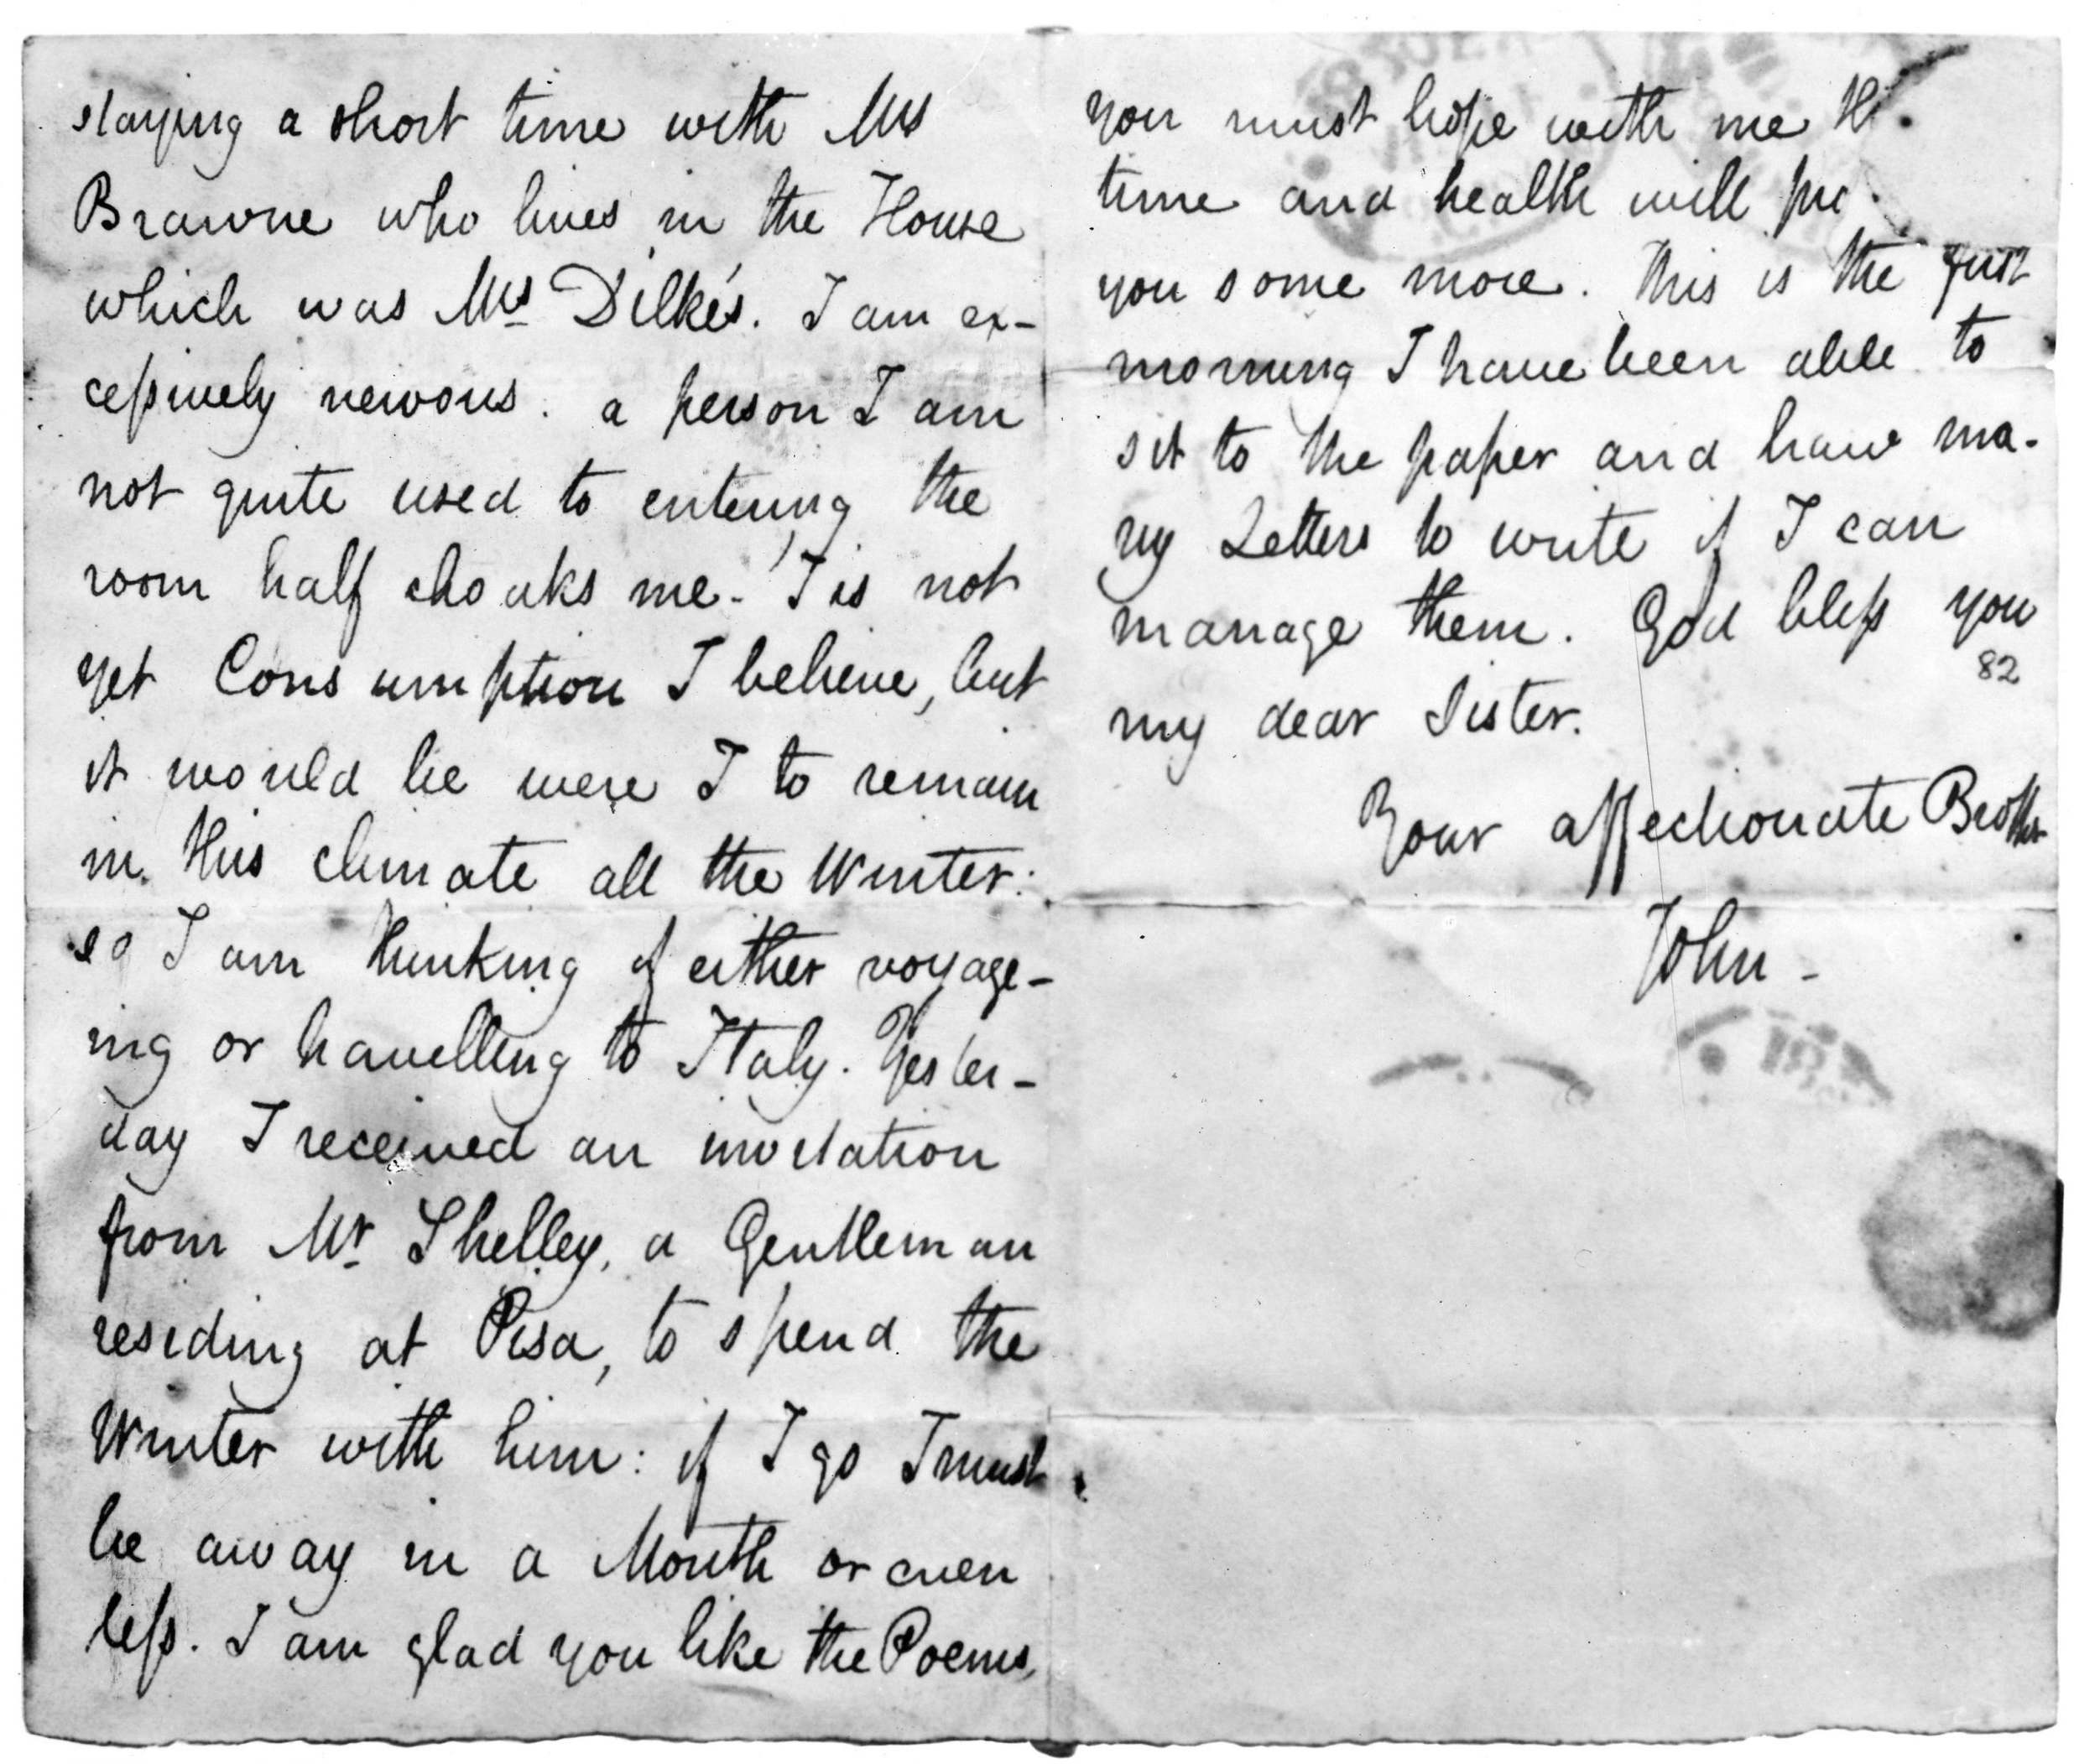 staying a short time with Mrs
Brawne who lives in the House
which was Mrs Dilke's. I am ex-
cessively nervous. a person I am
not quite used to entering the
room half choaks me - 'T is not
yet Consumption I believe, but
it would be were I to remain
in this climate all the Winter:
so I am thinking of either voyage-
ing or travelling to Italy. Yester-
day I received an invitation
from Mr Shelley, a Gentleman
residing at Pisa, to spend the
Winter with him: if I go I must
be away in a Month or even
less. I am glad you like the Poems,
you must hope with me
time and health will
you some more. This is the first
morning I have been able to
sit to the paper and have ma-
ny Letters to write if I can
manage them. God bless you
82
my dear Sister.
Your affectionate Brother
John -